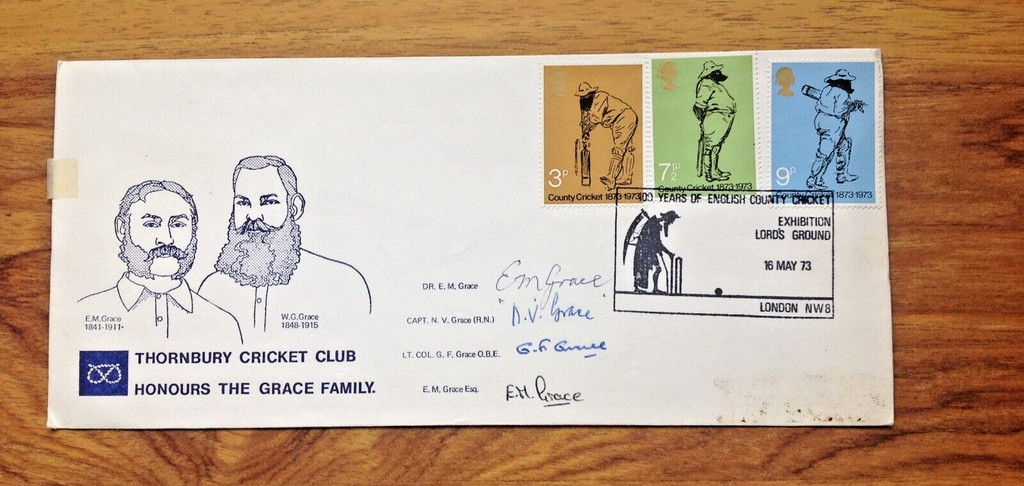 3P
County Cricket 1873-1973
7½P
County Cricket 1873-1973
9P
County Cricket 1873-1973
100 YEARS OF ENGLISH COUNTY CRICKET
EXHIBITION
LORD'S GROUND
16 MAY 73
LONDON NW8
E.M.Grace
1841-1911
W.G.Grace
1848-1915
THORNBURY CRICKET CLUB
HONOURS THE GRACE FAMILY.
DR. E. M. Grace E M Grace
CAPT. N. V. Grace (R.N.) N.V. Grace
LT. COL. G. F. Grace O.B.E. G. F. Grace
E. M. Grace Esq. E.M. Grace